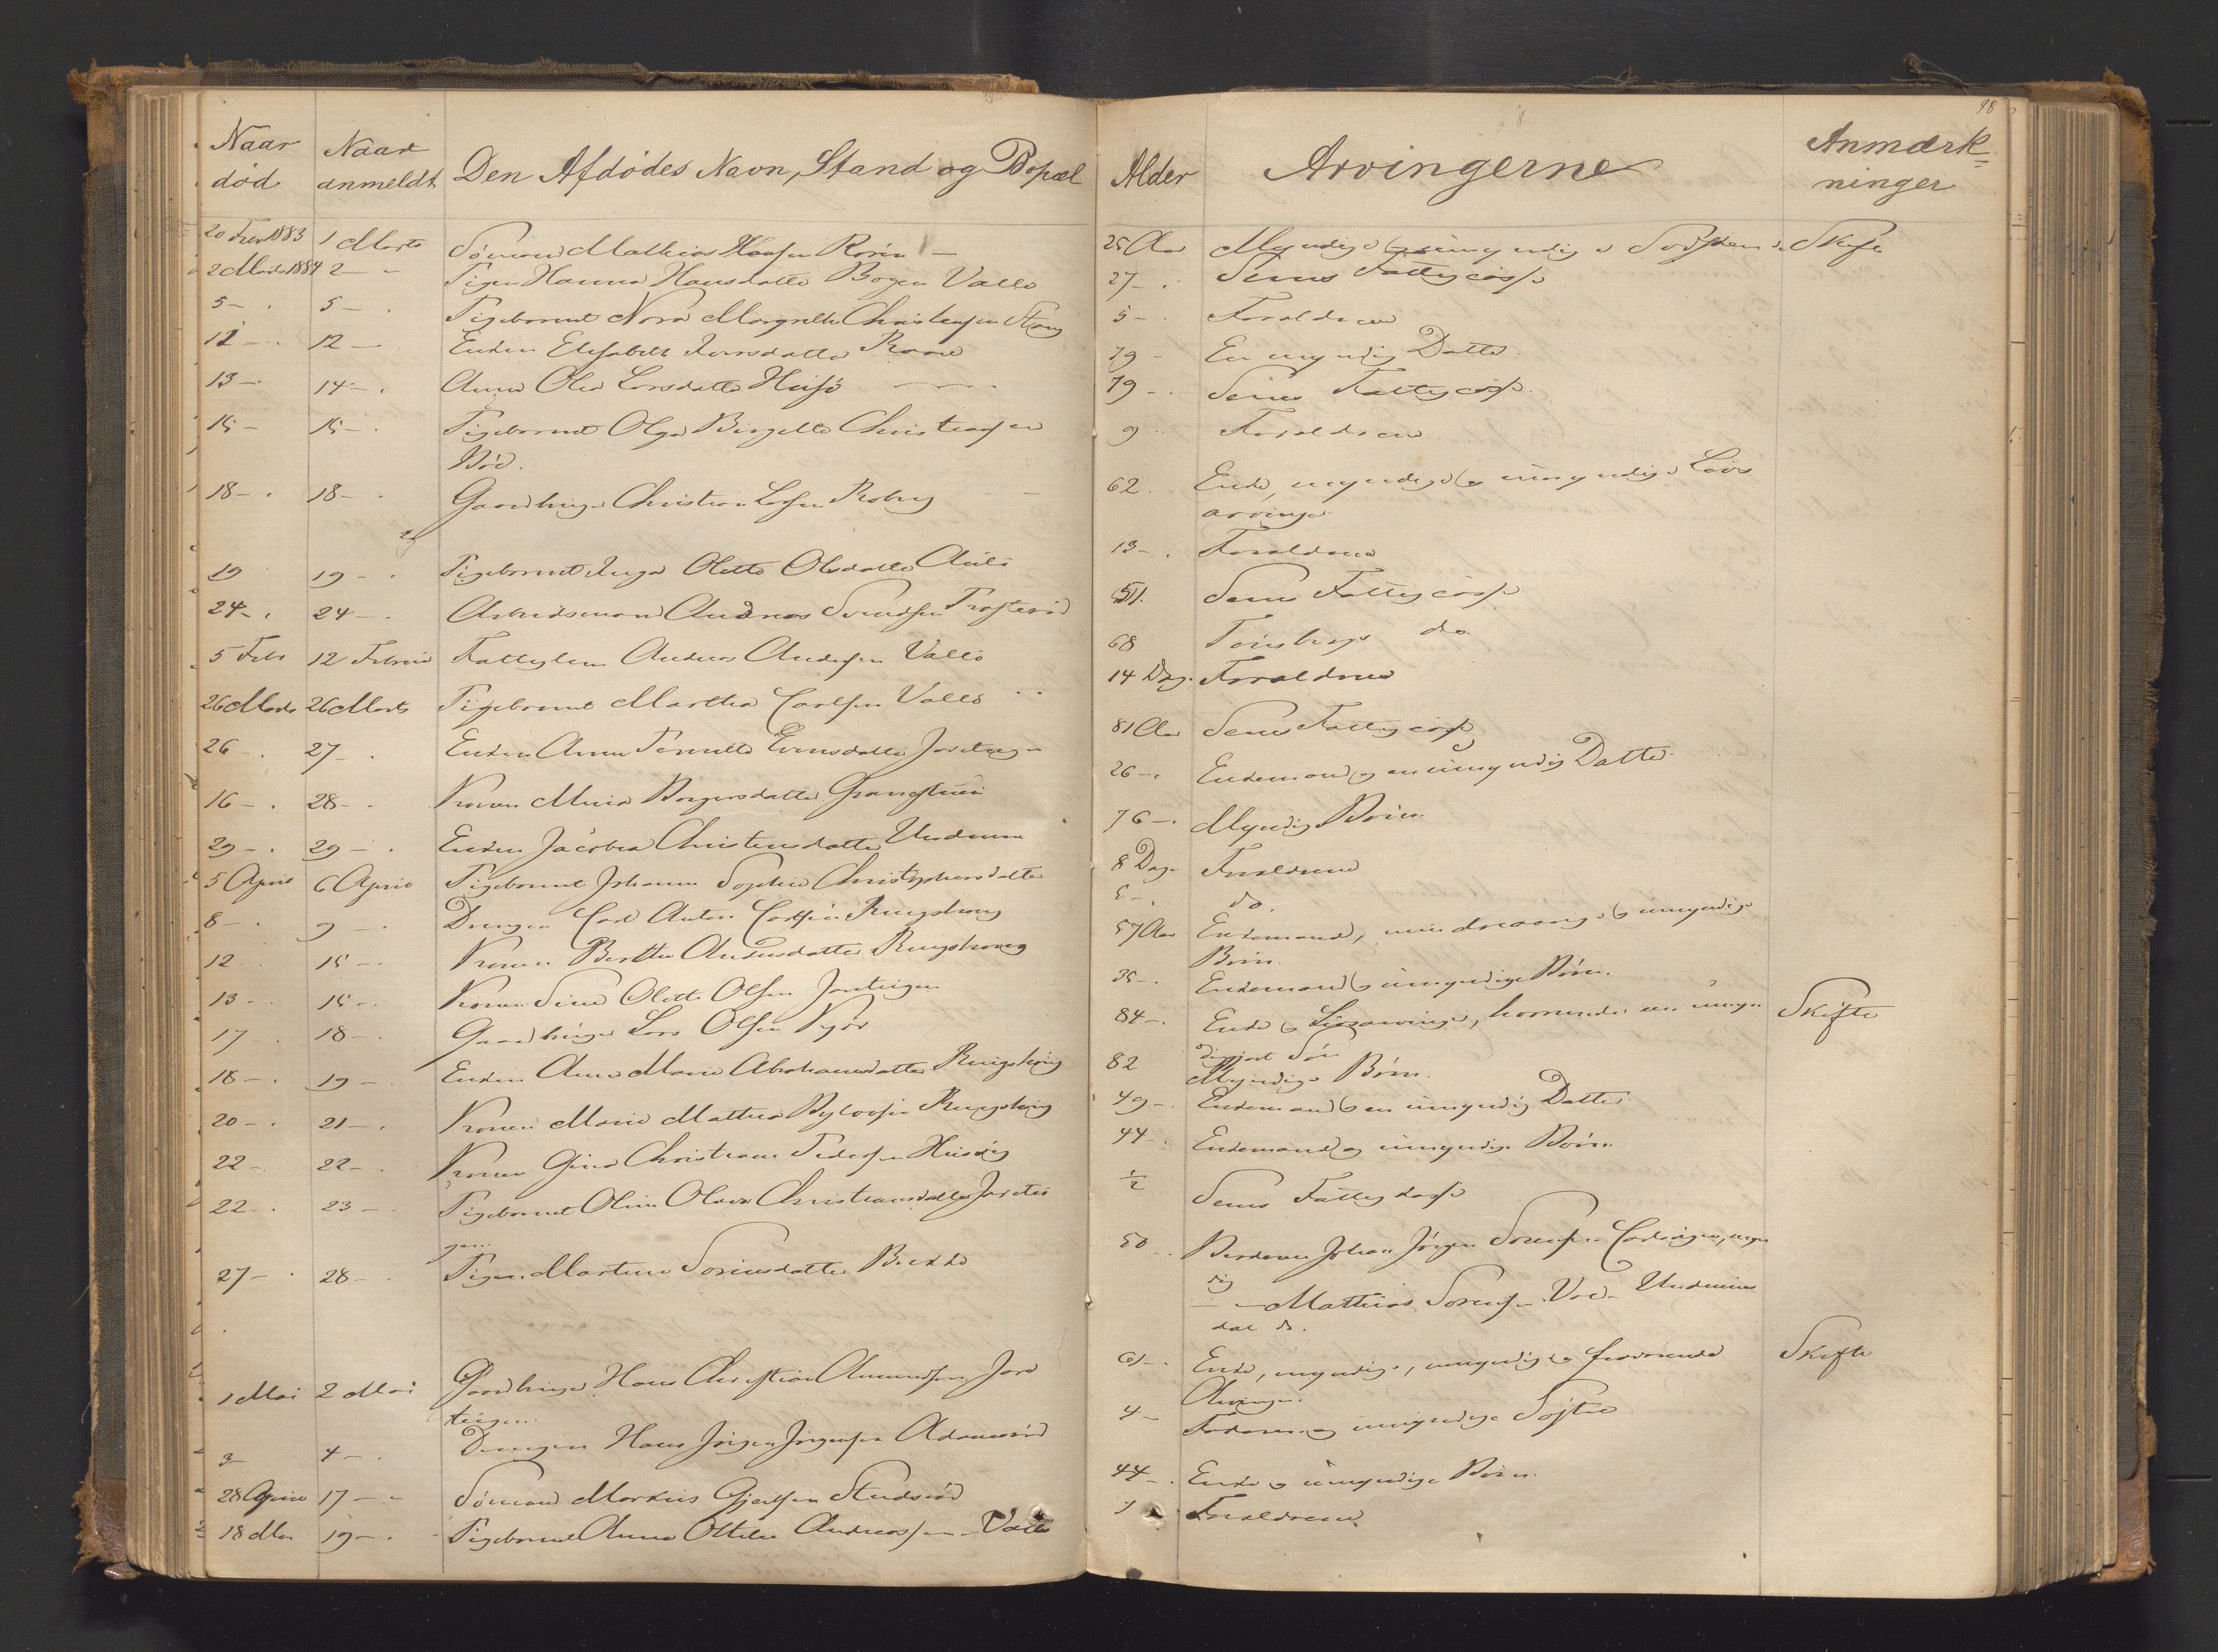 98
Naar død Naar anmeldt Den Afdødes Navn, Stand og Bopæl Alder Arvingerne Anmærk=
ninger
20 Febr 1883 1 Marts Sømand Mathias Hansen Rørin 25 Aar Myndige og umyndige Sødskende Skifte
2 Marts 1884 2 - Pigen Hanna Hansdatter Bogen Vallø 27 - Sems Fattigcasse
5 - 5 - Pigebarnet Nora Margrethe Christensen 5 - Forældrene
12 - 12 - Enken Elisabeth Iversdatter 79 - En myndig Datter
13 - 14 - Anna Olea Larsdatter Husø 79 - Sems Fattigcasse
15 - 15 - Pigebarnet Olga Birgette Christiansen 9 Forældrene
Bøe.
18 - 18 - Gaardbruger Christian Larsen Roberg 62. Enke, myndige og umyndige Livs
arvinger
19 19 - Pigebarnet Inga Olette Olsdatter Auli 13 - Forældrene
24 - 24 - Arbeidsmand Andreas Svendsen 51. Sems Fattigcasse
5 Febr 12 Februar Fattiglem Andreas Andersen Vallø 68 Tønsbergs do
26 Marts 26 Marts Pigebarnet Martha Carlsen Vallø 14 Dag. Forældrene
26 - 27 - Enken Anne Pernille Evensdatter Jareteigen 81 Aar Sems Fattigcasse
16 - 28 - Konen Maria Borgersdatter 26 - Enkemand og en umyndig Datter
29 - 29 - Enken Jacobea Christensdatter Undrum 76 - Myndige Børn
5 April 6 April Pigebarnet Johanne Sophie Christophersdatter 8 Dage Forældrene
8 - 9 - Drengen Carl Anton Carlsen Ringshoug 5 - do.
12 15 - Konen Berthe Andersdatter Ringshoug 57 Aar Enkemand, mindreaarige og umyndige
Børn.
13 - 15 - Konen Sina Olette Olsen Jareteigen 35 - Enkemand og umyndige Børn.
17 18 - Gaardbruger Lars Olsen 84 - Enke og Livsarvinger, hvorunder en umyn
diggjort Søn Skifte
18 - 19 - Enken Anne Marie Abrahamsdatter Ringshoug 82 Myndige Børn.
20 - 21 - Konen Marie Mathea Ringshoug 49 - Enkemand og en umyndig Datter
22 - 22 - Konen Gina Christiane Pedersen Husvig 44 - Enkemand og umyndige Børn
22 - 23 - Pigebarnet Oline Olava Christiansdatter Jaretei
gen ½ Sems Fattigkasse
27 - 28 - Pigen Martine Sørensdatter Bække 50 Broderen Johan Jørgen Sørensen, myn
dig
- Mathias Sørensen Undrums
dal do.
1 Mai 2 Mai Gaardbruger Hans Christian Amundsen Jare
teigen 61 - Enke, myndige, umyndige og fraværende
Arvinger. Skifte
3 - 4 - Drengen Hans Jørgen Jørgensen Adamsrød 4 - Faderen og umyndige Søstre
28 April 17 - Sømand Markus Gjertsen Studsrød 44 - Enke og umyndige Børn
18 Mai 19 - Pigebarnet Anna Ottilie Andreassen Vallø 1 Forældrene